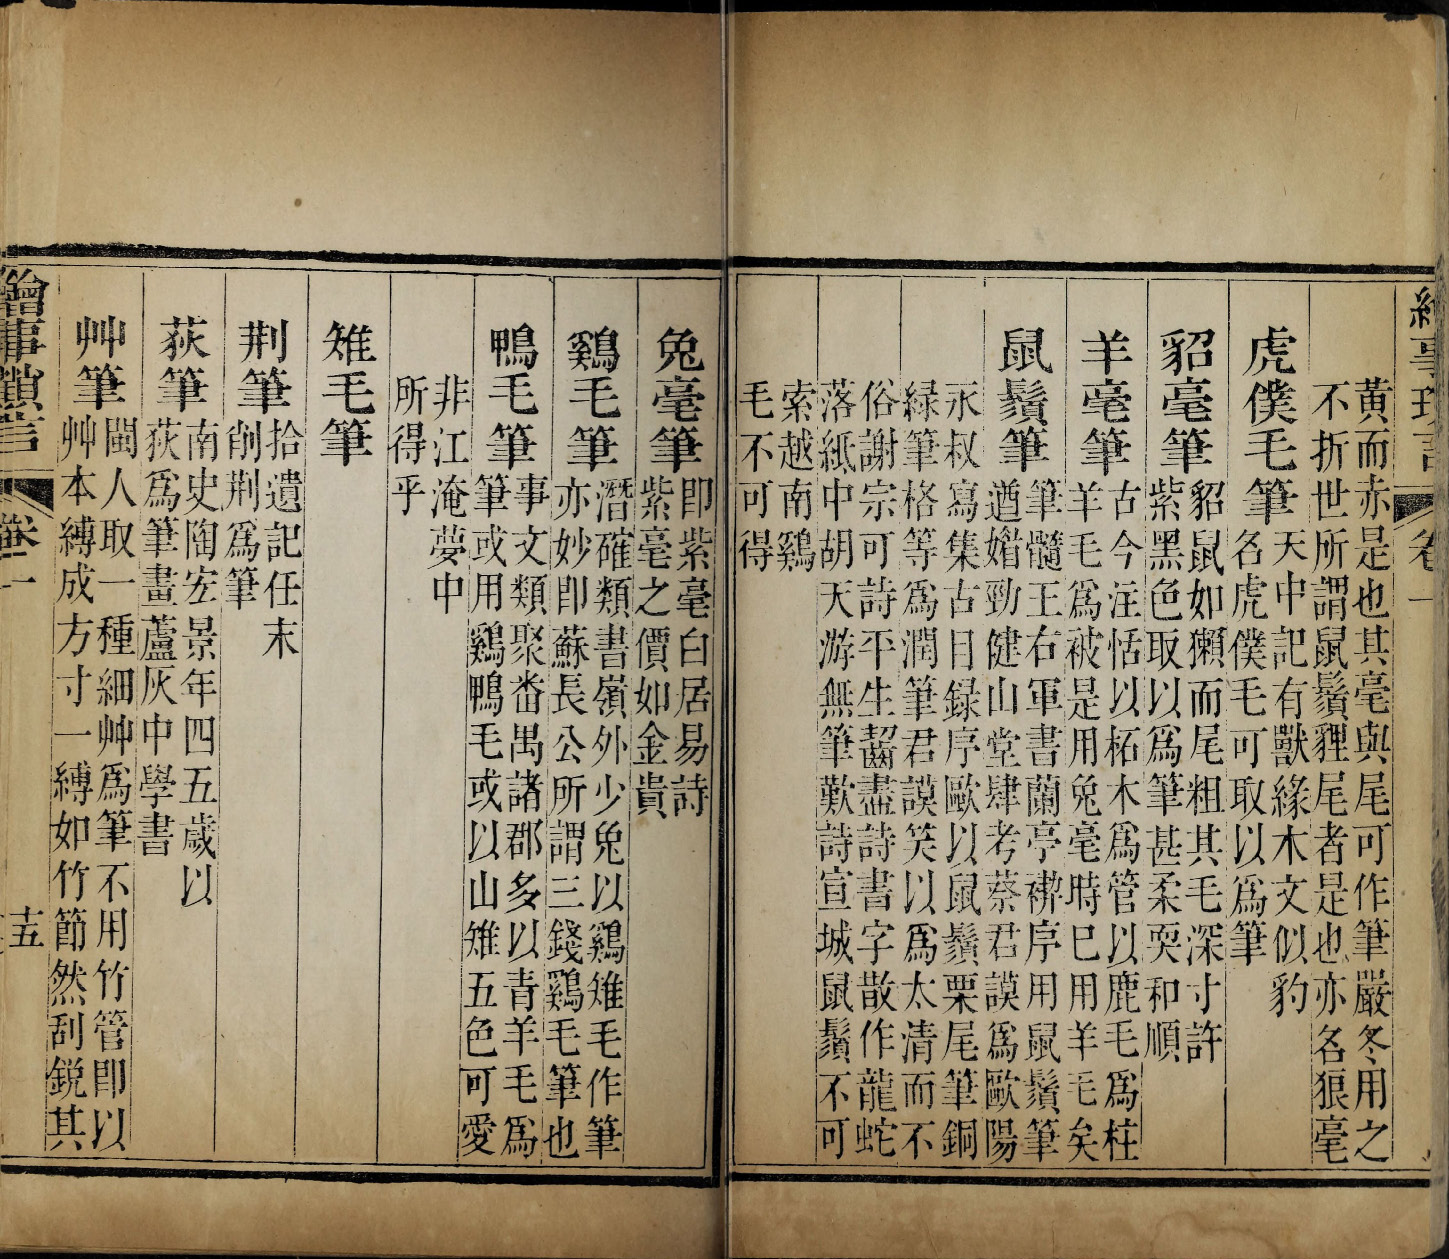 繪事瑣言 卷一
黃而赤是也其毫與尾可作筆嚴冬用之
不折世所謂鼠鬚貍尾者是也亦名狼毫
虎僕毛筆
天中記有獸緣木文似豹
名虎僕毛可取以爲筆
貂毫筆
貂鼠如獺而尾粗其毛深寸許
紫黑色取以爲筆甚柔耎和順
羊毫筆
古今注恬以柘木爲管以鹿毛爲柱
羊毛爲被是用兔毫時巳用羊毛矣
鼠鬚筆
筆髓王右軍書蘭亭禊序用鼠鬚筆
遒媘勁健山堂肆考蔡君謨爲歐陽
永叔寫集古目録序歐以鼠鬚栗尾筆銅
緑筆格等爲潤筆君謨笑以爲太清而不
俗謝宗可詩平生齧盡詩書字散作龍蛇
落紙中胡天游無筆歎詩宣城鼠鬚不可
索越南鷄
毛不可得
兔毫筆
即紫毫白居易詩
紫毫之價如金貴
鷄毛筆
潛確類書嶺外少兔以鷄雉毛作筆
亦妙即蘇長公所謂三錢鷄毛筆也
鴨毛筆
事文類聚畨禺諸郡多以青羊毛爲
筆或用鷄鴨毛或以山雉五色可愛
非江淹夢中
所得乎
雉毛筆
荆筆
拾遺記任末
削荆爲筆
荻筆
南史陶宏景年四五歲以
荻爲筆畫蘆灰中學書
艸筆
閩人取一種細艸爲筆不用竹管即以
艸本縛成方寸一縛如竹節然刮鋭其
繪事瑣言 卷一 十五